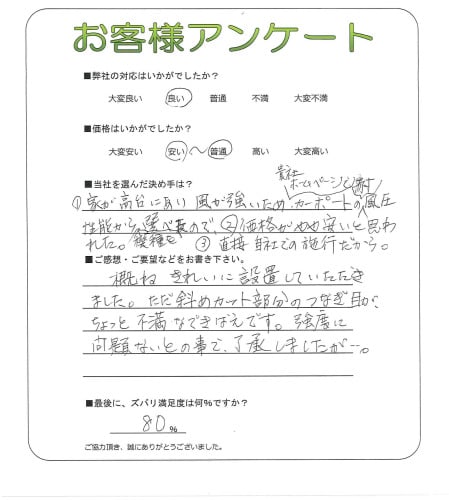 お客様アンケート
■弊社の対応はいかがでしたか？
大変良い 良い 普通 不満 大変不満
■価格はいかがでしたか？
大変安い 安い 〜 普通 高い 大変高い
■当社を選んだ決め手は？
貴社
ホームページで
①家が高台にあり 風が強いため カーポートの耐風圧
性能から 機種を 選べたので、②価格がやや安いと思わ
れた。 ③直接自社での施行だから。
■ご感想・ご要望などをお書き下さい。
概ね きれいに設置していただき
ました。ただ斜めカット部分のつなぎ目が、
ちょっと不満なできばえです。強度に
問題ないとの事で、了承しましたが…。
■最後に、ズバリ満足度は何%ですか？
80 %
ご協力頂き、誠にありがとうございました。